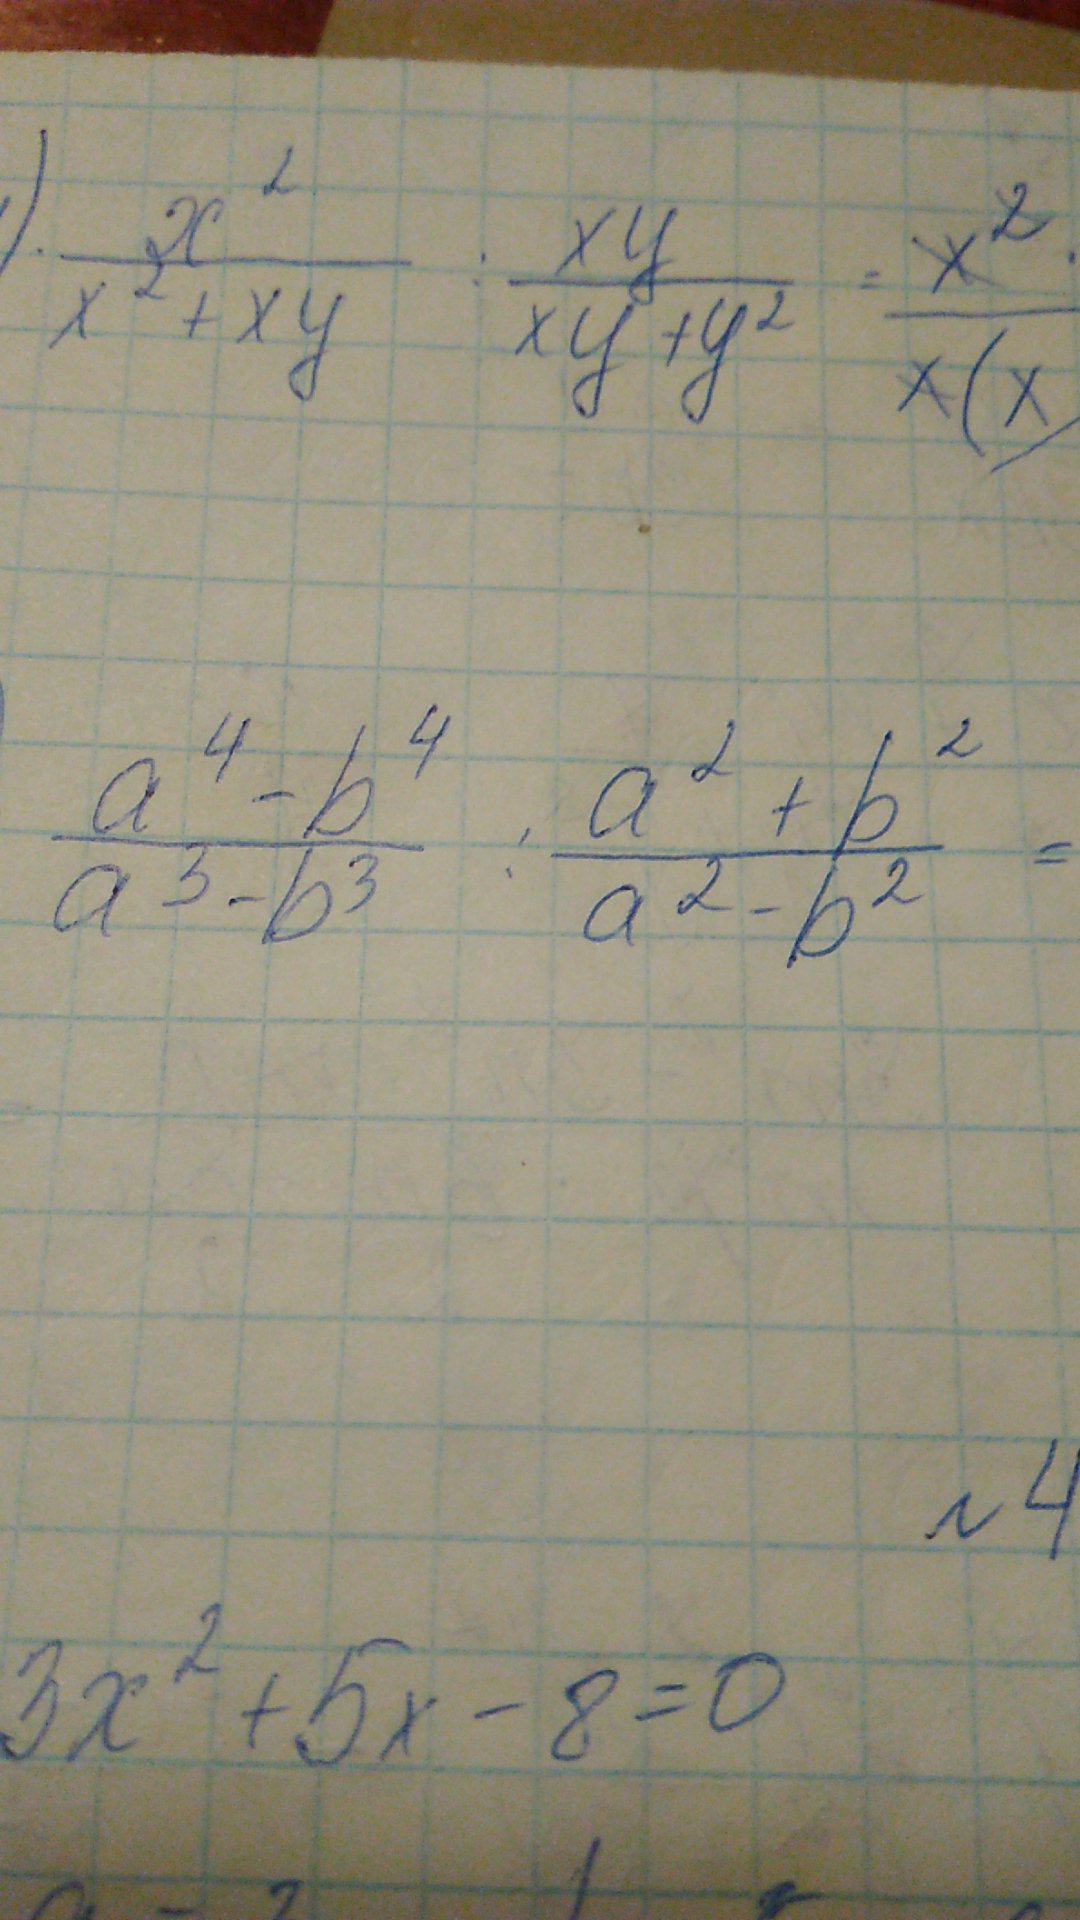 ) x² / (x² + xy) : xy / (xy + y²) = x² · / x(x
(a⁴ - b⁴) / (a³ - b³) : (a² + b²) / (a² - b²) =
№4
3x² + 5x - 8 = 0